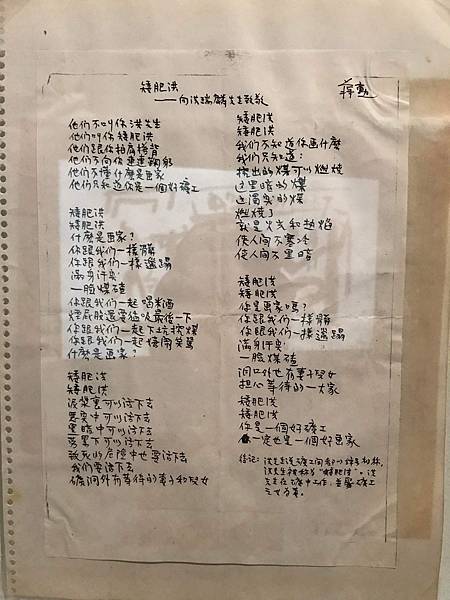 矮肥洪
——向洪瑞麟先生致敬
蔣勳
他們不叫你洪先生
他們叫你矮肥洪
他們跟你拍肩搭背
他們不向你連連鞠躬
他們不懂什麼是画家
他們只知道你是一個好礦工
矮肥洪
矮肥洪
什麼是画家?
你跟我們一樣髒
你跟我們一樣邋遢
滿身汗臭
一臉煤碴
你跟我們一起喝米酒
煙屁股還要猛吸最後一下
你跟我們一起下坑挖煤
你跟我們一起怪聞笑罵
什麼是画家?
矮肥洪
矮肥洪
泥漿裏可以活下去
惡臭中可以活下去
黑暗中可以活下去
勞累下可以活下去
致死的危險中也要活下去
我們要活下去
礦洞外有等待的妻子和兒女
矮肥洪
矮肥洪
我們不知道你画什麼
我們只知道:
挖出的煤可以燃燒
这黑暗的煤
这濁臭的煤
燃燒了
就是火光和熱焰
使人間不寒冷
使人間不黑暗
矮肥洪
矮肥洪
你是画家嗎?
你跟我們一樣髒
你跟我們一樣邋遢
滿身汗臭
一臉煤碴
洞口外也有妻子兒女
担心等待的一大家
矮肥洪
矮肥洪
你是一個好礦工
一定也是一個好画家
後記:洪先生送礦工間都以綽号相称,
洪先生被称为“矮肥洪”。洪
先生在礦中工作,並屬礦工